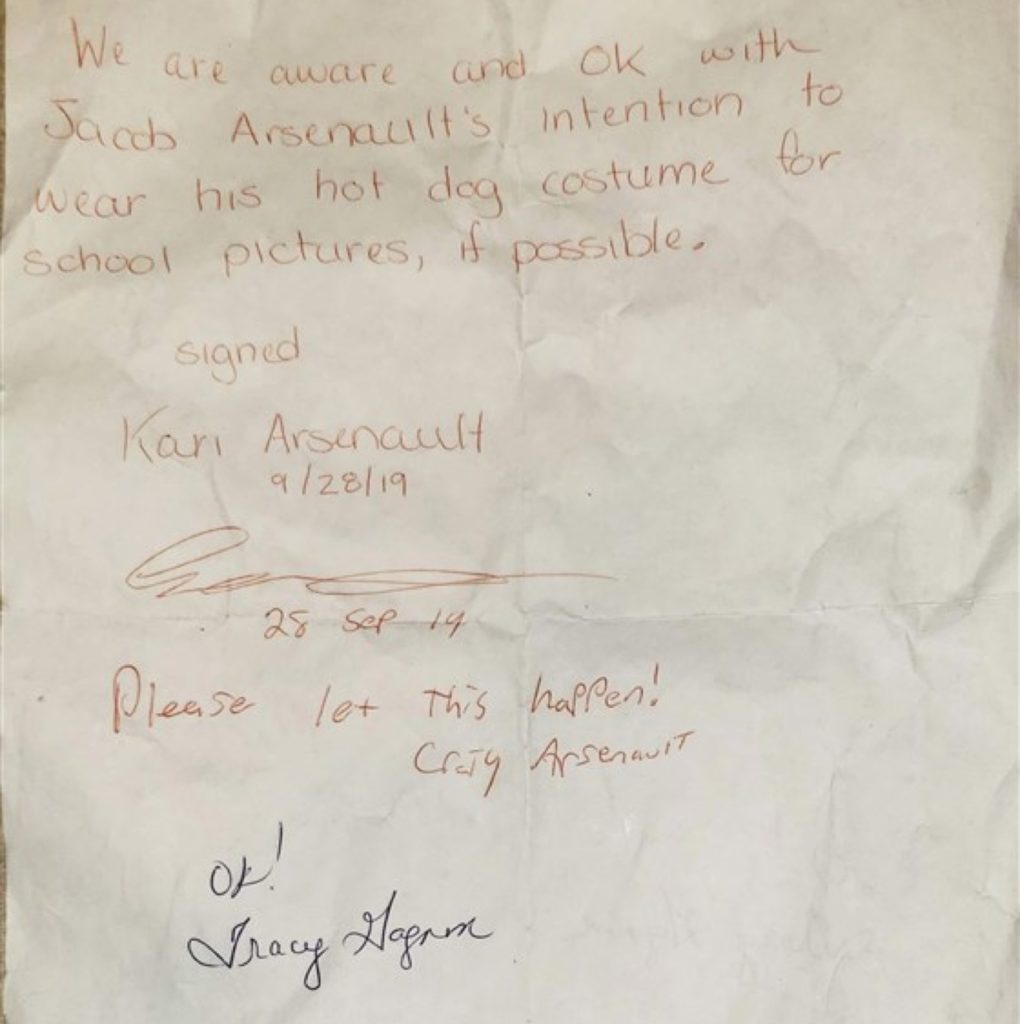 We are aware and OK with
Jacob Arsenault's intention to
wear his hot dog costume for
school pictures, if possible.
signed
Kari Arsenault
9/28/19
28 Sep 19
Please let this happen!
Craig Arsenault
OK!
Tracy